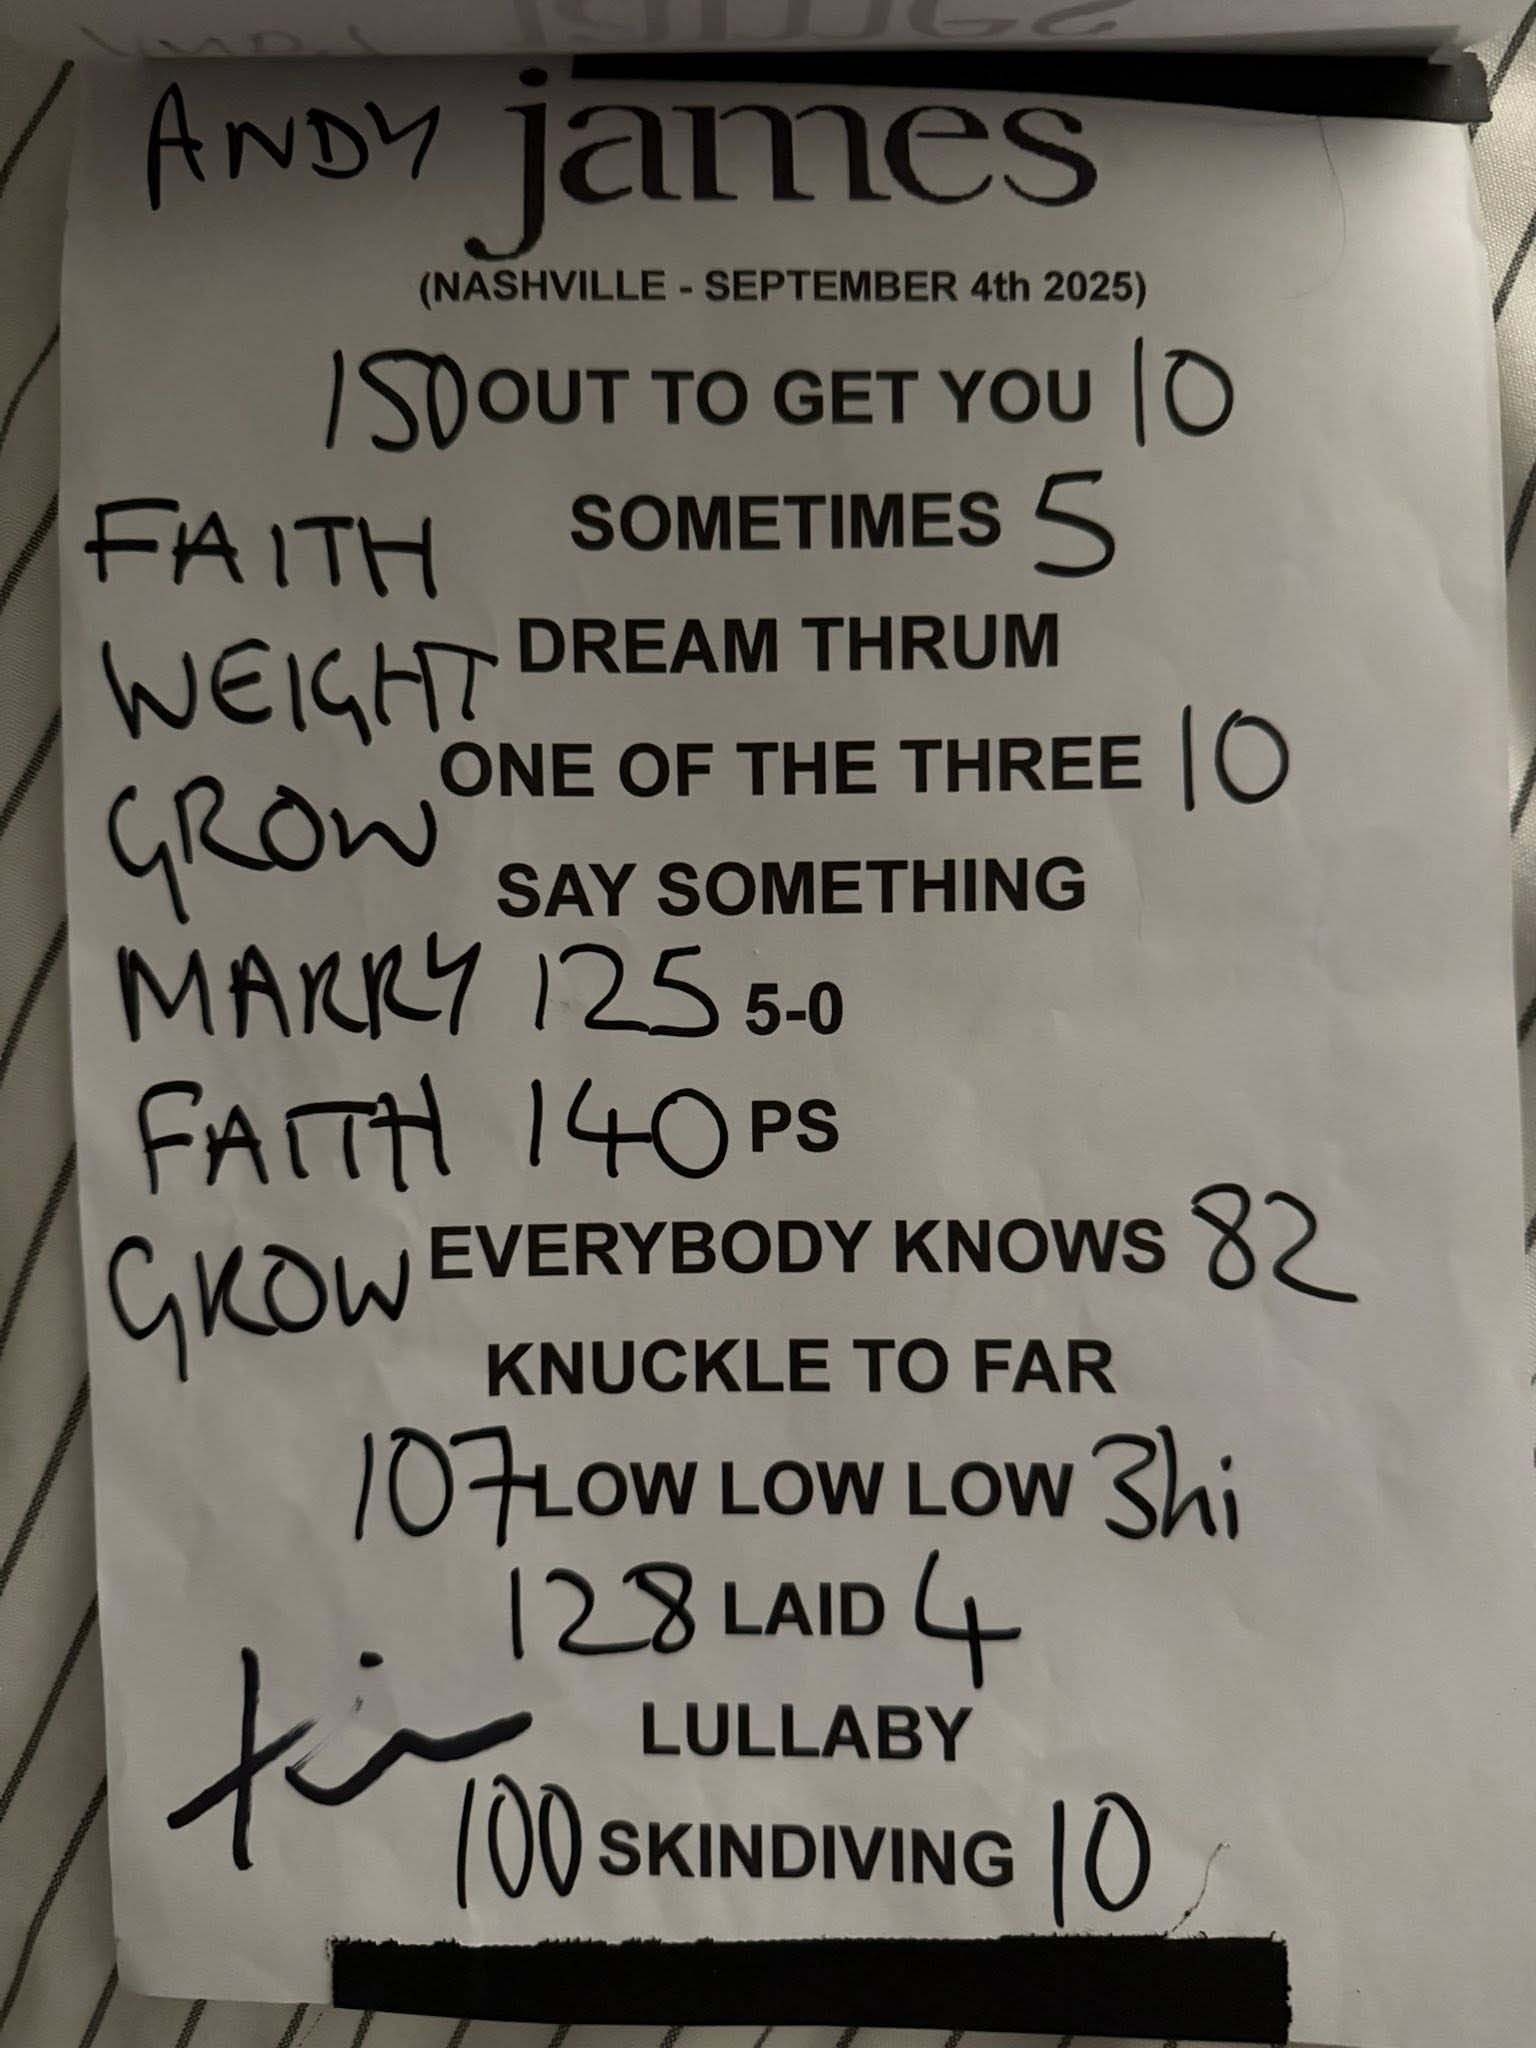 ANDY james
(NASHVILLE - SEPTEMBER 4th 2025)
150 OUT TO GET YOU 10
FAITH SOMETIMES 5
WEIGHT DREAM THRUM
GROW ONE OF THE THREE 10
SAY SOMETHING
MARRY 125 5-0
FAITH 140 PS
GROW EVERYBODY KNOWS 82
KNUCKLE TO FAR
107 LOW LOW LOW 3hi
128 LAID 4
LULLABY
100 SKINDIVING 10